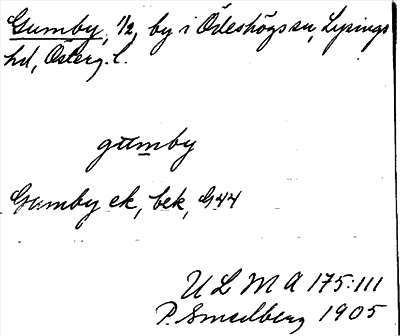 Gumby, 1/2, by i Ödeshögs sn, Lysings
hd, Österg. l.
gumby
Gumby ek, bek, G44
ULMA 175:111
P. Smedberg 1905